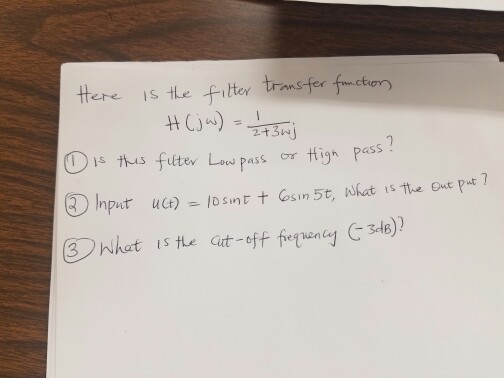 Here is the filter transfer function
H(jw) = 1/(2+3wj)
① is this filter Low pass or High pass?
② Input u(t) = 10 sint + 6sin5t, What is the out put?
③ What is the cut-off frequency (-3dB)?